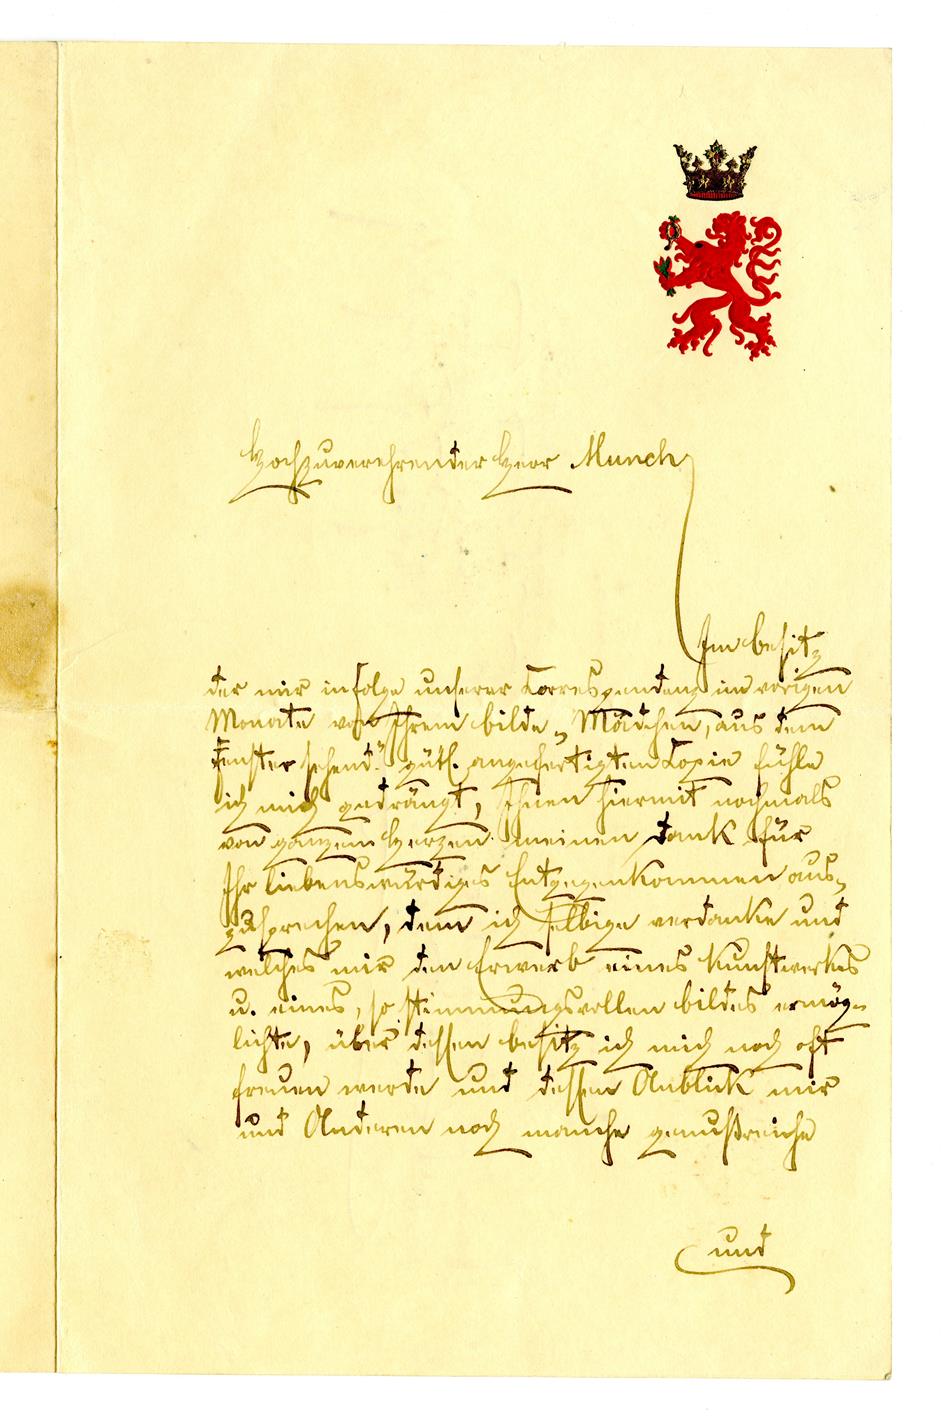 Hochzuverehrender Herr Munch
Im Besitz
der mir infolge unserer Correspondenz im vorigen
Monate von Ihrem Bilde „Mädchen, aus dem
Fenster sehend“ gütl. angefertigten Copie fühle
ich mich gedrängt, Ihnen hiermit nochmals
von ganzem Herzen meinen Dank für
Ihr liebenswürdiges Entgegenkommen aus-
zusprechen, dem ich selbige verdanke und
welches mir den Erwerb eines Kunstwerkes
u. eines, so stimmungsvollen Bildes ermög-
lichte, über dessen Besitz ich mich noch oft
freuen werde und dessen Anblick mir
und Anderen noch manche genußreiche
und